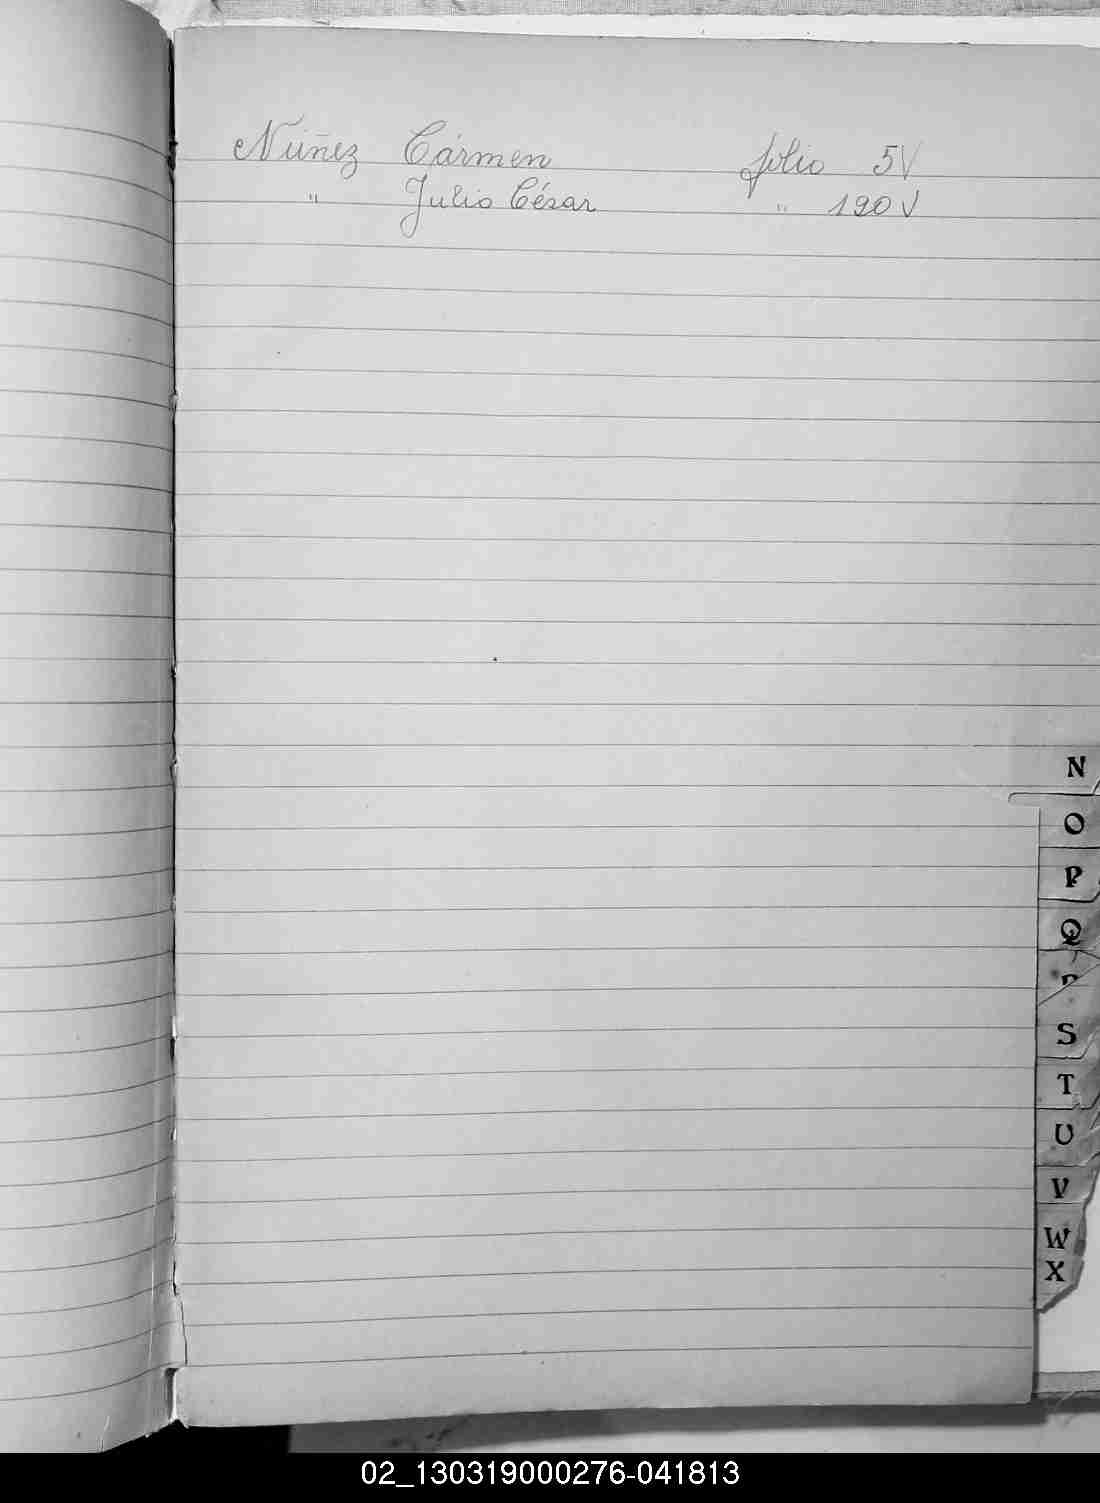 Núñez Cármen folio 5V
" Julio César " 190V
N
O
P
Q
S
T
U
V
W
X
02_130319000276-041813